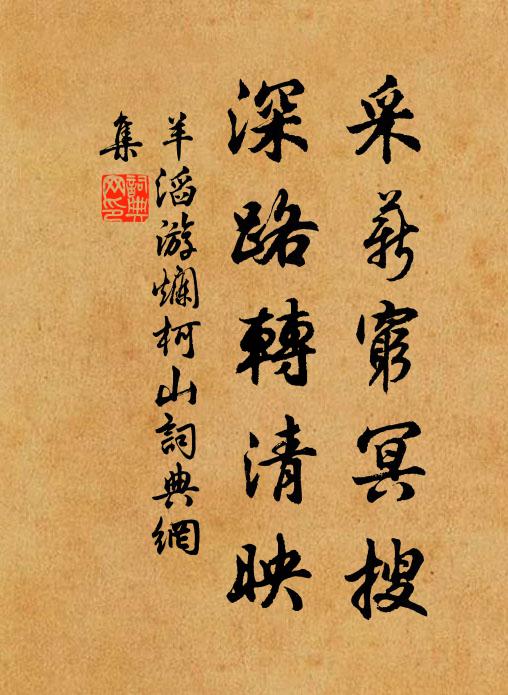 采薪窮冥搜
深路轉清映
羊滔游爛柯山詞典網
集
詞典
网印